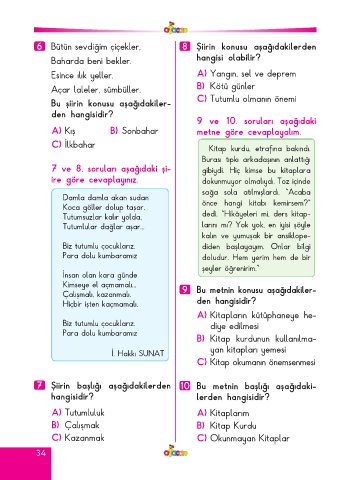 6 Bütün sevdiğim çiçekler,
Baharda beni bekler.
Esince ılık yeller.
Açar laleler, sümbüller.
Bu şiirin konusu aşağıdakiler-
den hangisidir?
A) Kış B) Sonbahar
C) İlkbahar
7 ve 8. soruları aşağıdaki şi-
ire göre cevaplayınız.
Damla damla akan sudan
Koca göller dolup taşar.
Tutumsuzlar kalır yolda,
Tutumlular dağlar aşar...
Biz tutumlu çocuklarız.
Para dolu kumbaramız
İnsan olan kara günde
Kimseye el açmamalı..
Çalışmalı, kazanmalı.
Hiçbir işten kaçmamalı.
Biz tutumlu çocuklarız.
Para dolu kumbaramız
İ. Hakkı SUNAT
7 Şiirin başlığı aşağıdakilerden
hangisidir?
A) Tutumluluk
B) Çalışmak
C) Kazanmak
8 Şiirin konusu aşağıdakilerden
hangisi olabilir?
A) Yangın, sel ve deprem
B) Kötü günler
C) Tutumlu olmanın önemi
9 ve 10. soruları aşağıdaki
metne göre cevaplayalım.
Kitap kurdu, etrafına bakındı.
Burası tıpkı arkadaşının anlattığı
gibiydi. Hiç kimse bu kitaplara
dokunmuyor olmalıydı. Toz içinde
sağa sola atılmışlardı. "Acaba
önce hangi kitabı kemirsem?"
dedi. "Hikâyeleri mi, ders kitap-
larını mı? Yok yok, en iyisi şöyle
kalın ve yumuşak bir ansiklope-
diden başlayayım. Onlar bilgi
doludur. Hem yerim hem de bir
şeyler öğrenirim."
9 Bu metnin konusu aşağıdakiler-
den hangisidir?
A) Kitapların kütüphaneye he-
diye edilmesi
B) Kitap kurdunun kullanılma-
yan kitapları yemesi
C) Kitap okumanın önemsenmesi
10 Bu metnin başlığı aşağıdaki-
lerden hangisidir?
A) Kitaplarım
B) Kitap Kurdu
C) Okunmayan Kitaplar
34